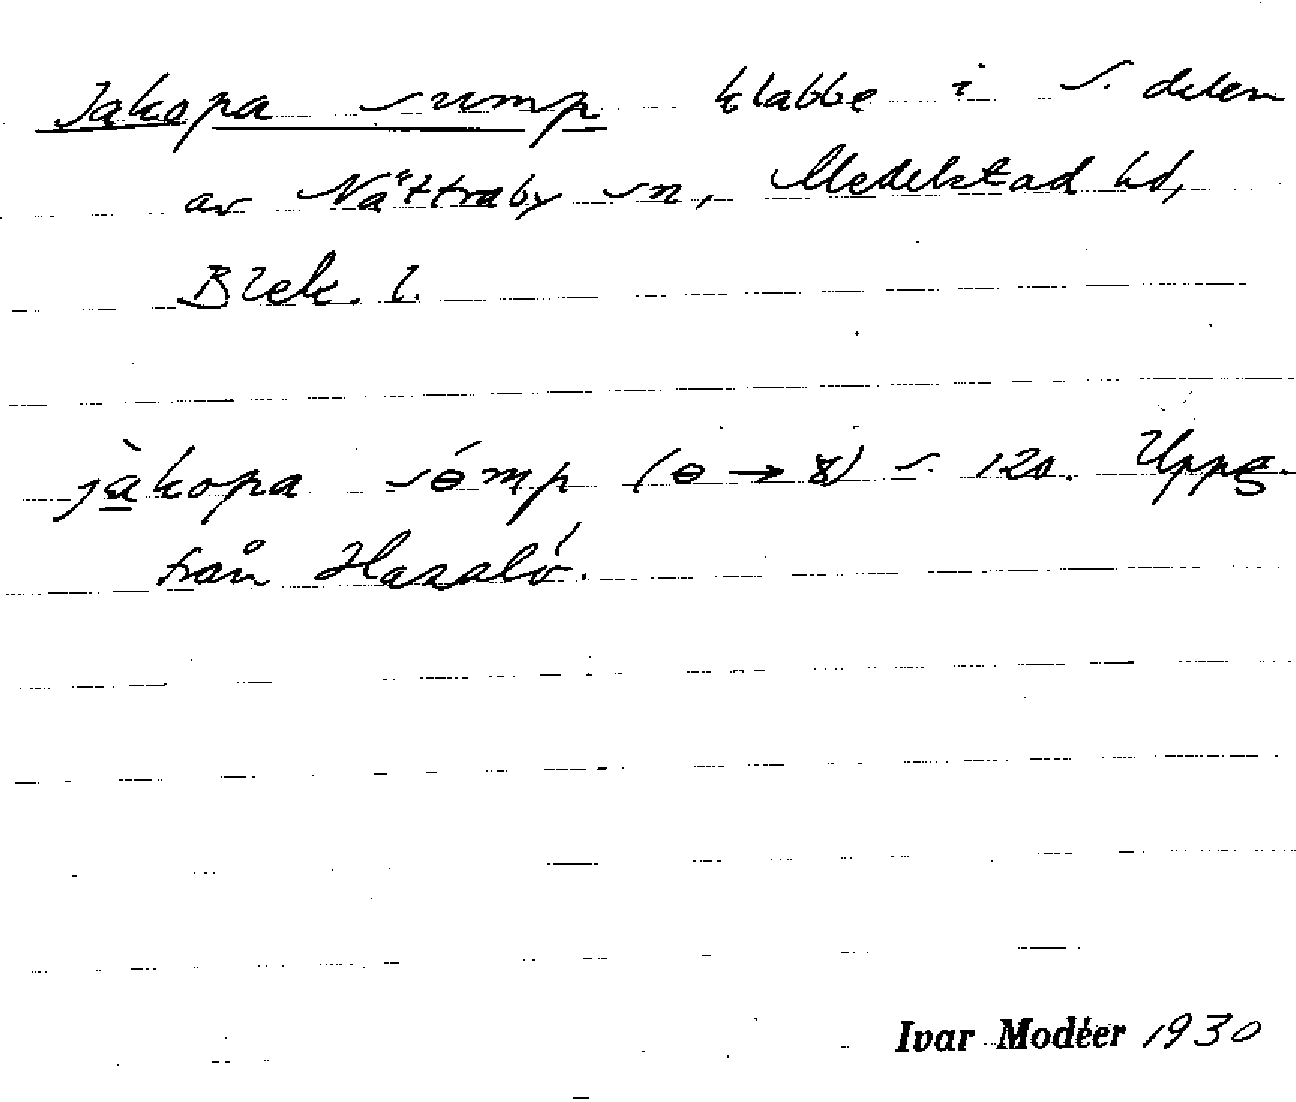 Jakopa sump klabbe i S. delen
av Nättraby sn, Medelstad hd,
Blek. l.
jàkopa sɵ́mp (ɵ → 8) s. 120. Uppg.
från Hasslö.
Ivar Modéer 1930